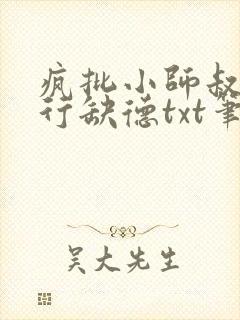 疯批小師叔
行缺德txt筆
吴大先生